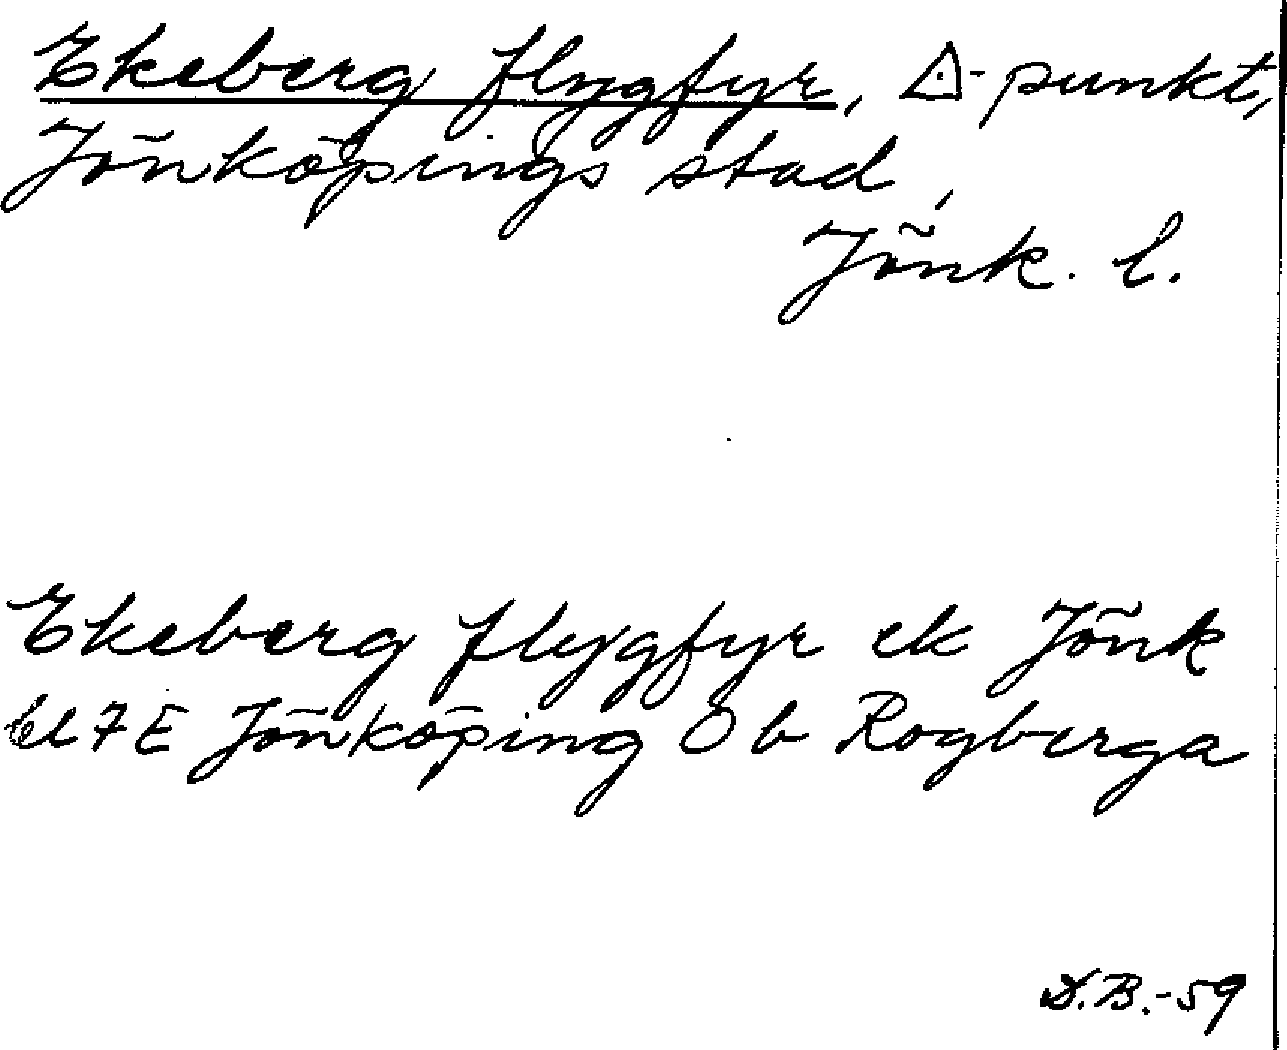 Ekeberg flygfyr, △-punkt,
Jönköpings stad,
Jönk. l.
Ekeberg flygfyr ek Jönk
bl 7E Jönköping Ö b Rogberga
D.B.-59